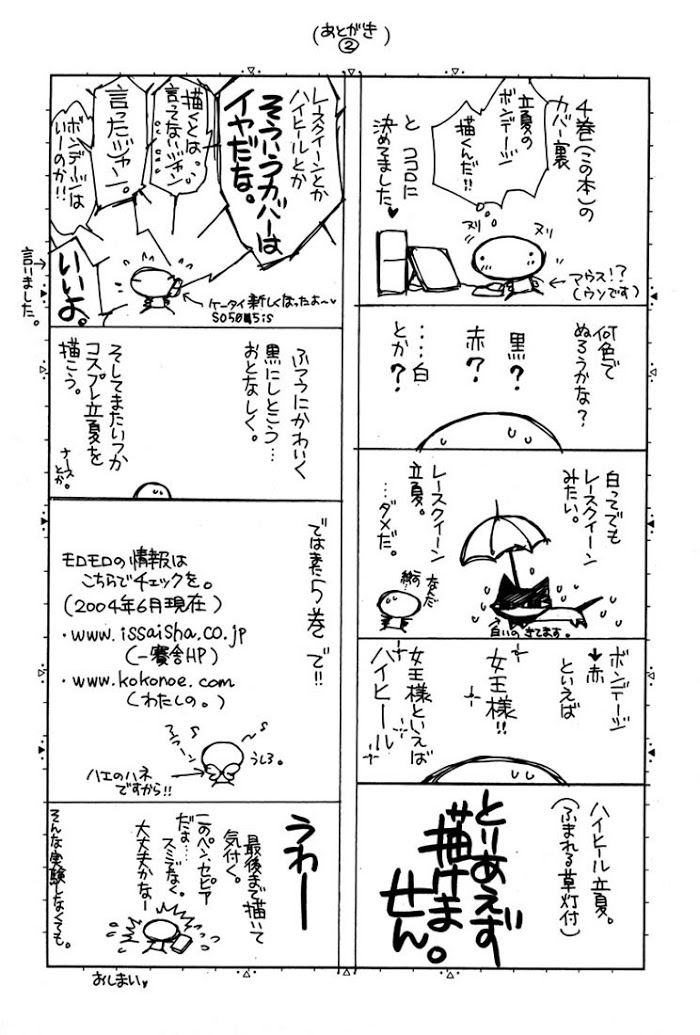 (あとがき
②)
4巻(この本)の
カバー裏
立夏の
ボンデージ
描くんだ!!
と ココロに
決めてました♥
ヌリ
ヌリ
マウス!?
(ウソです)
何色で
ぬろうかな?
黒?
赤?
……白
とか?
白ってでも
レースクィーン
みたい。
レースクィーン
立夏。
…ダメだ。
なんだ
白いの きてます。
ボンデージ
→赤
といえば
女王様!!
女王様といえば
ハイヒール
ハイヒール立夏。
(ふまれる草灯付)
とりあえず
描けま
せん。
レースクィーンとか
ハイヒールとか
そういうカバーは
イヤだな。
描くとは
言ってないジャン
言ったジャン。
ボンデージは
いーのか!!
いいよ。
言いました。
ケータイ新しくなったよ〜
SO505iS
ふつうにかわいく
黒にしとこう…
おとなしく。
そしてまたいつか
コスプレ立夏を
描こう。
ナース
とか。
ではまた5巻で!!
モロモロの情報は
こちらでチェックを。
(2004年6月現在)
・www.issaisha.co.jp
(一賽舎HP)
・www.kokonoe.com
(わたしの。)
うしろ。
ハエのハネ
ですから!!
うわー
最後まで描いて
気付く。
このペン、セピア
だよ……
スミでなく。
大丈夫かなー
そんな実験しなくても。
おしまい♥